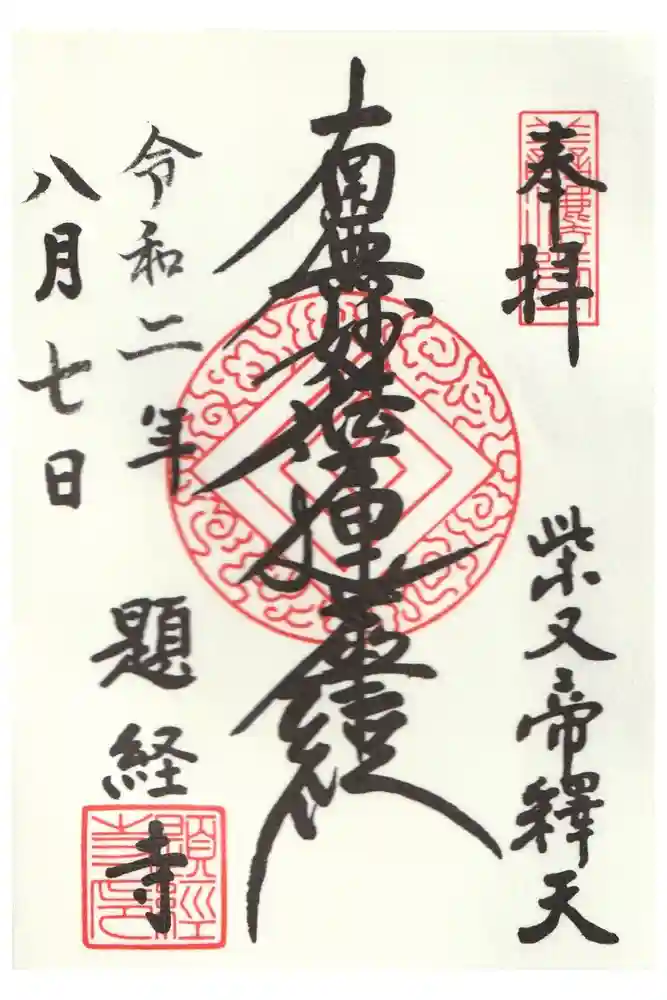 奉拝
柴又帝釋天
南無妙法蓮華経
令和二年
八月七日
題経寺